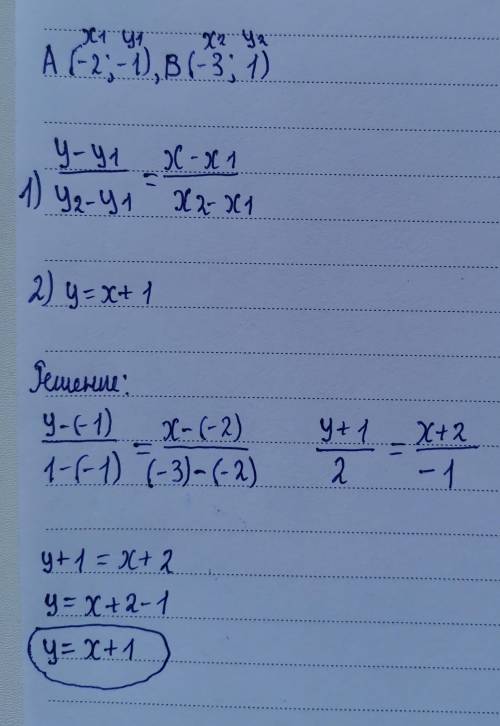 x1 y1 x2 y2
A (-2; -1), B (-3; 1)
1) (y - y1)/(y2 - y1) = (x - x1)/(x2 - x1)
2) y = x + 1
Решение:
(y - (-1))/(1 - (-1)) = (x - (-2))/((-3) - (-2)) (y + 1)/2 = (x + 2)/-1
y + 1 = x + 2
y = x + 2 - 1
y = x + 1